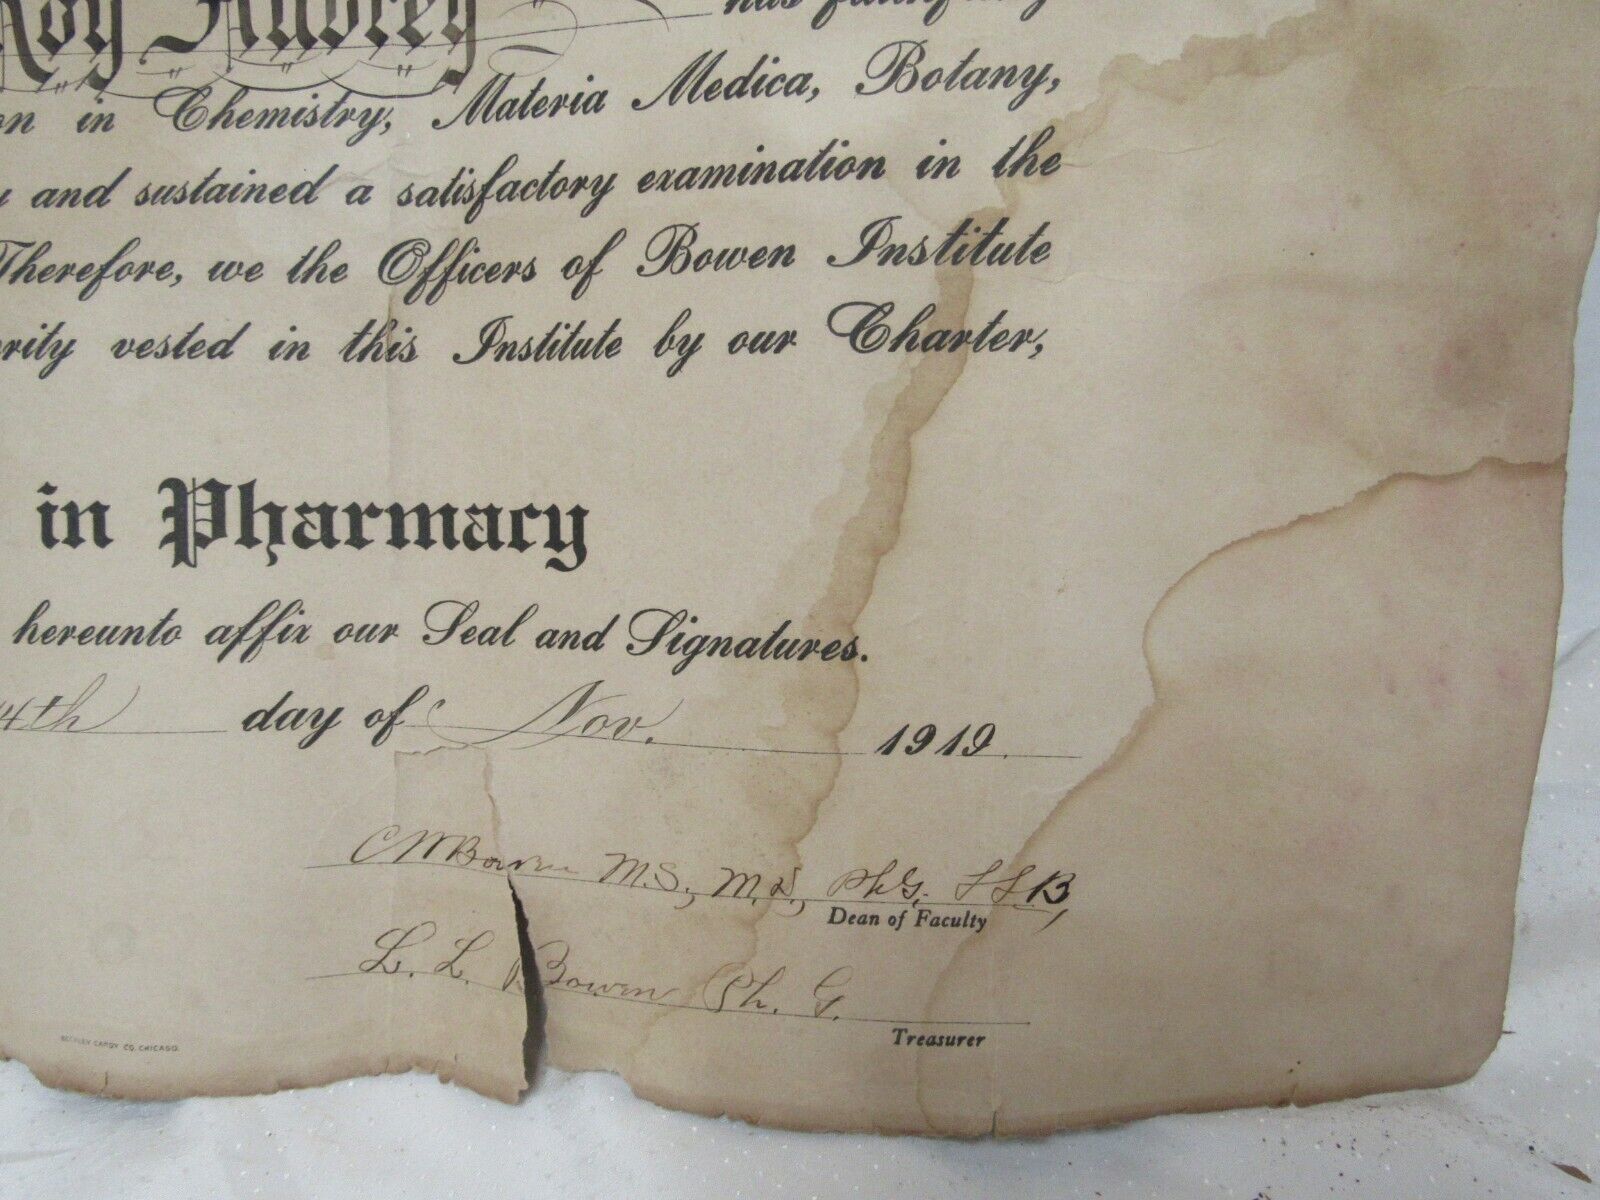 Roy Aubrey has faithfully
on in Chemistry, Materia Medica, Botany,
and sustained a satisfactory examination in the
Therefore, we the Officers of Bowen Institute
rity vested in this Institute by our Charter,
in Pharmacy
hereunto affix our Seal and Signatures.
4th day of Nov. 1919.
C M Bowen M.S., M.D., PhG, LLB,
Dean of Faculty
L. L. Bowen Ph. G.
Treasurer
BECKLEY CARDY CO. CHICAGO.